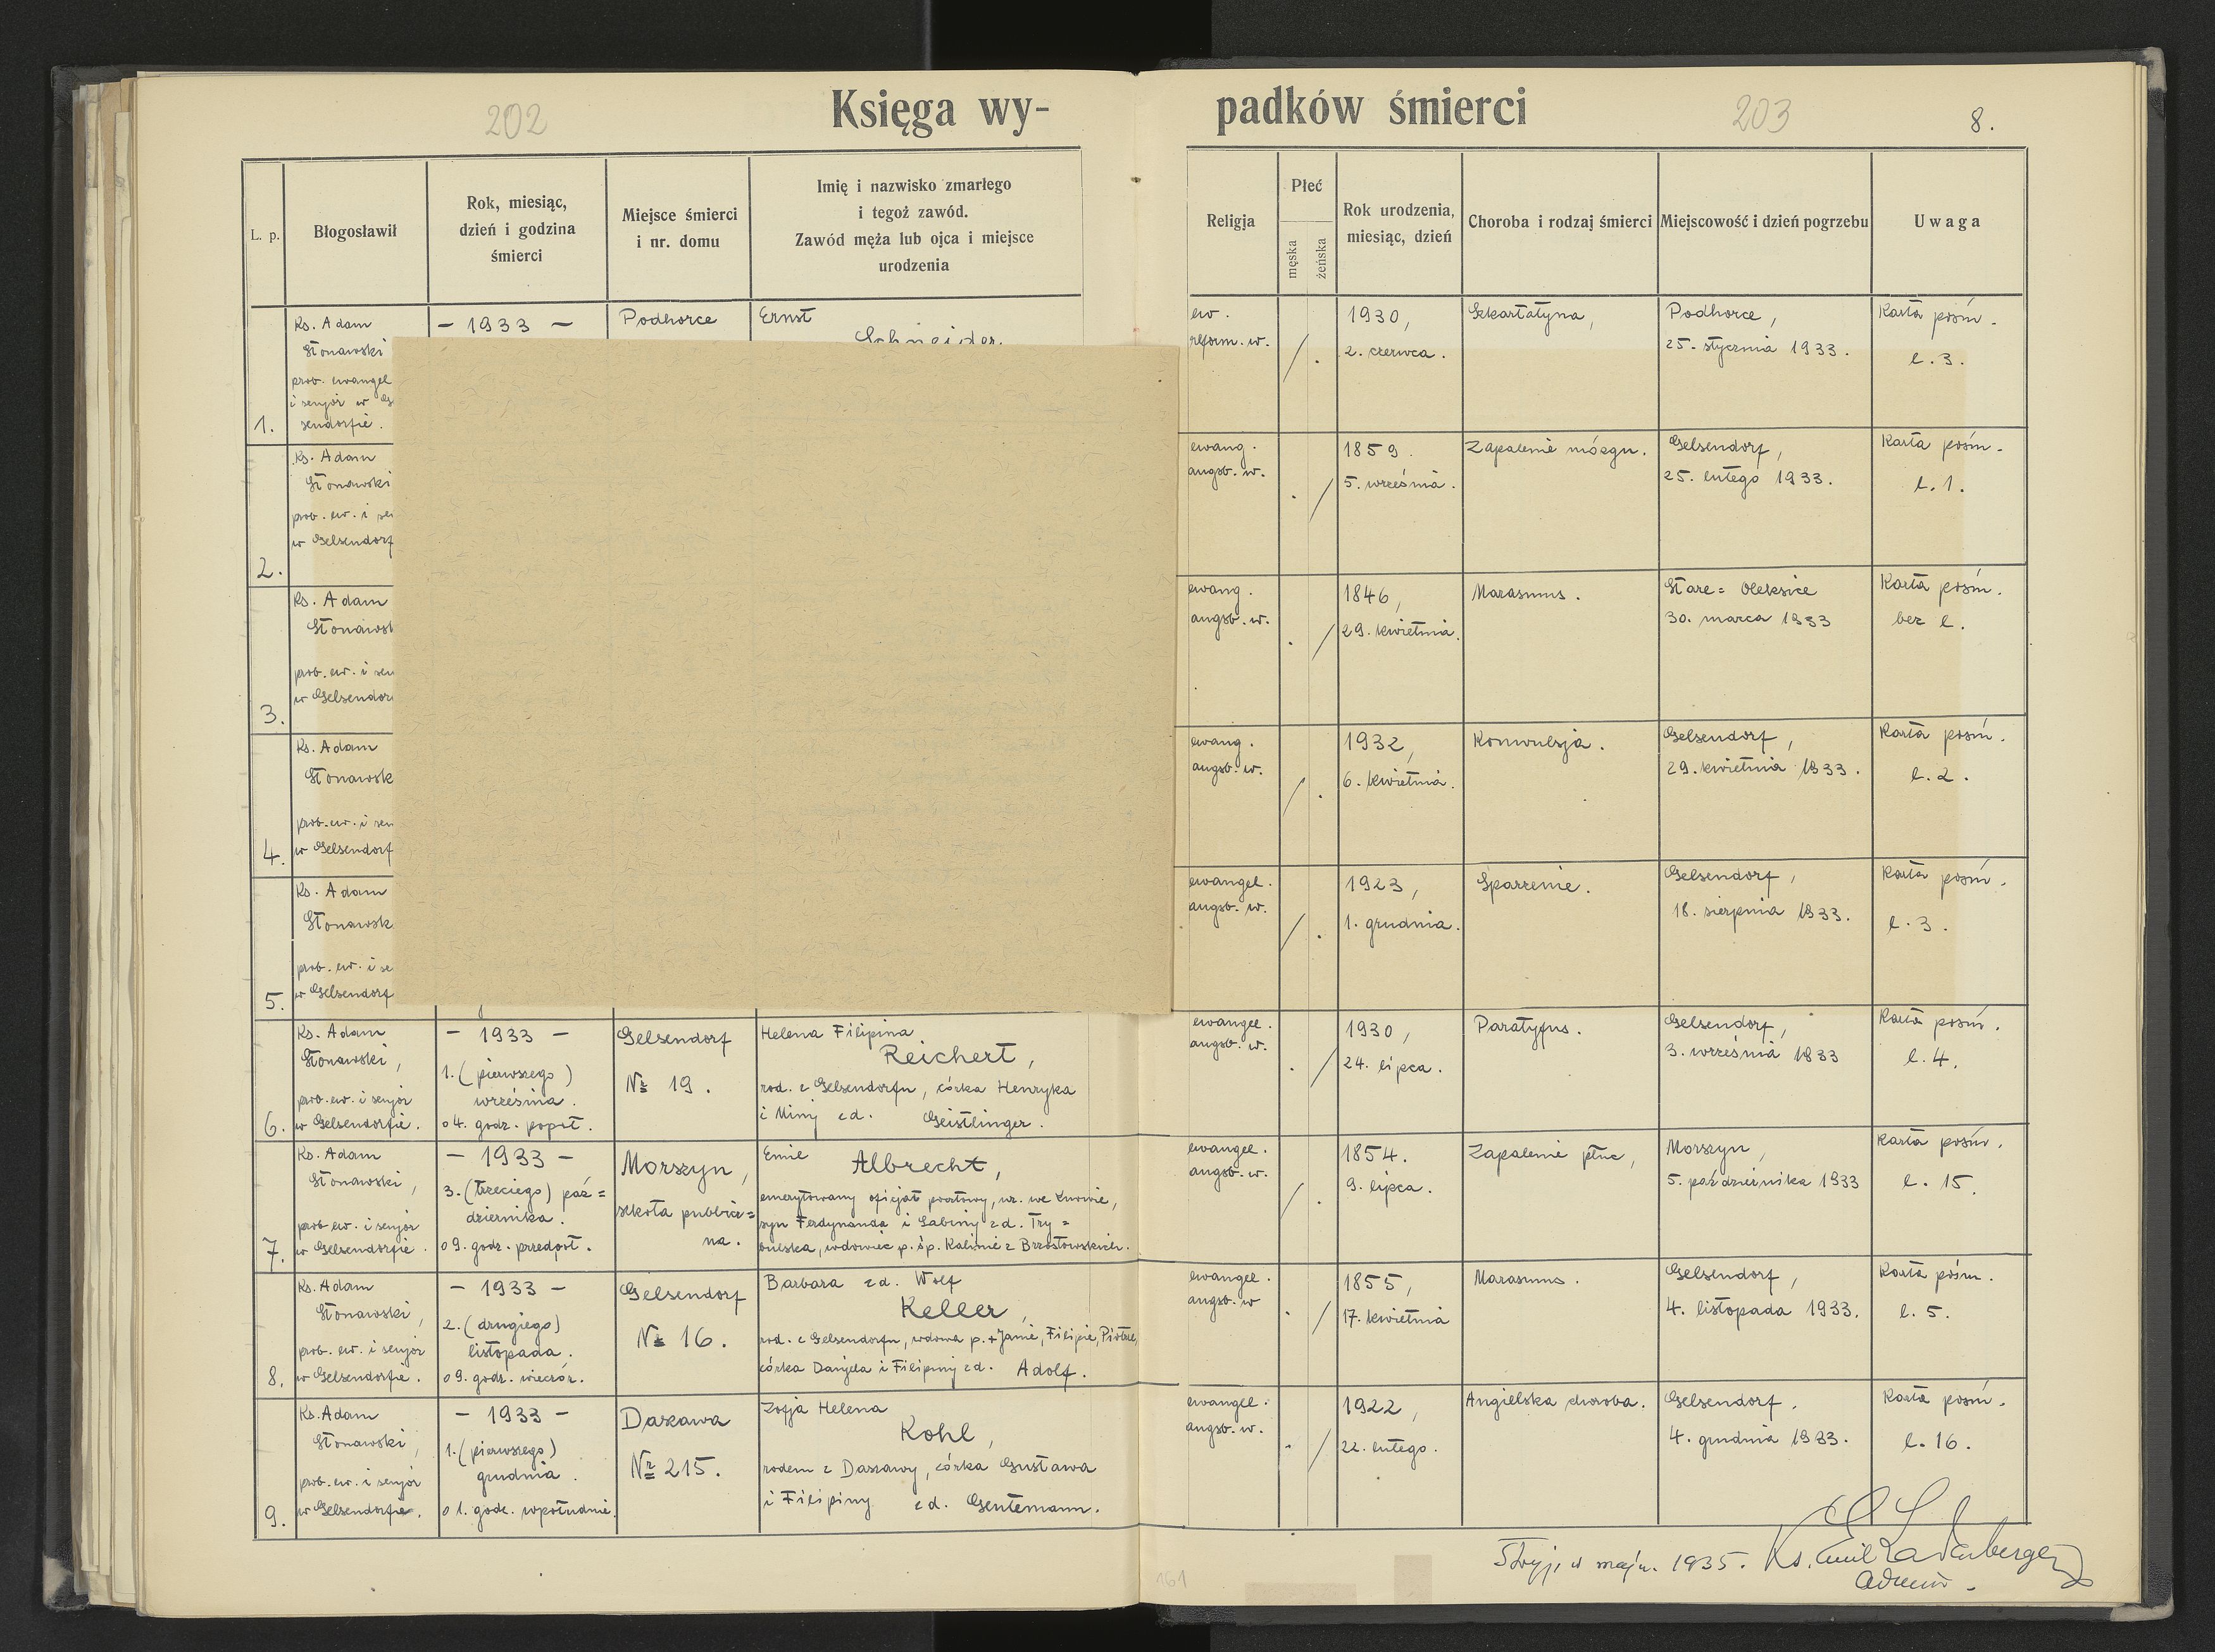 202
Księga wy-
L. p.
Błogosławił
Rok, miesiąc,
dzień i godzina
śmierci
Miejsce śmierci
i nr. domu
Imię i nazwisko zmarłego
i tegoż zawód.
Zawód męża lub ojca i miejsce
urodzenia
1.
Ks. Adam
Stonawski
prob. ewangel
i senjor w Ge
sendorfie.
- 1933 -
Podhorce
Ernst
Schneider
2.
Ks. Adam
Stonawski
prob. ew. i sen
w Gelsendorf
3.
Ks. Adam
Stonawsk
prob. ew. i sen
w Gelsendor
4.
Ks. Adam
Stonawsk
prob. ew. i sen
w Gelsendorf
5.
Ks. Adam
Stonawsk
prob. ew. i se
w Gelsendorf
6.
Ks. Adam
Stonawski,
prob. ew. i senjor
w Gelsendorfie.
- 1933 -
1. (pierwszego)
września.
o 4. godz. popoł.
Gelsendorf
Nr 19.
Helena Filipina
Reichert,
rod. z Gelsendorfu, córka Henryka
i Miny z d. Geistlinger.
7.
Ks. Adam
Stonawski,
prob. ew. i senjor
w Gelsendorfie.
- 1933 -
3. (trzeciego) paź=
dziernika.
o 9. godz. przedpoł.
Morszyn,
szkoła publicz=
na.
Emil
Albrecht,
emerytowany oficjał pocztowy, ur. we Lwowie,
syn Ferdynanda i Sabiny z d. Try=
bulska, wdowiec p. śp. Kalinie z Brzostowskich.
8.
Ks. Adam
Stonawski,
prob. ew. i senjor
w Gelsendorfie.
- 1933 -
2. (drugiego)
listopada.
o 9. godz. wieczór.
Gelsendorf
Nr 16.
Barbara z d. Wolf
Keller,
rod. z Gelsendorfu, wdowa p. + Janie, Filipie, Piotrze,
córka Danjela i Filipiny z d. Adolf.
9.
Ks. Adam
Stonawski,
prob. ew. i senjor
w Gelsendorfie.
- 1933 -
1. (pierwszego)
grudnia.
o 1. godz. wpołudnie.
Daszawa
Nr 215.
Zofja Helena
Kohl,
rodem z Daszawy, córka Gustawa
i Filipiny z d. Gentemann.
padków śmierci
203
8.
Religja
Płeć
męska
żeńska
Rok urodzenia,
miesiąc, dzień
Choroba i rodzaj śmierci
Miejscowość i dzień pogrzebu
Uwaga
ew.
reform. w.
/ .
1930,
2. czerwca.
Szkarłatyna,
Podhorce,
25. stycznia 1933.
Karta pośm.
l. 3.
ewang.
augsb. w.
. /
1859.
5. września.
Zapalenie mózgu.
Gelsendorf,
25. lutego 1933.
Karta pośm.
l. 1.
ewang.
augsb. w.
. /
1846,
29. kwietnia.
Marasmus.
Stare= Oleksice
30. marca 1933
Karta pośm.
bez l.
ewang.
augsb. w.
/ .
1932,
6. kwietnia.
Konwulsja.
Gelsendorf,
29. kwietnia 1933.
Karta pośm.
l. 2.
ewangel.
augsb. w.
/ .
1923,
1. grudnia.
Sparzenie.
Gelsendorf,
18. sierpnia 1933.
Karta pośm.
l. 3.
ewangel.
augsb. w.
. /
1930,
24. lipca.
Paratyfus.
Gelsendorf,
3. września 1933
Karta pośm.
l. 4.
ewangel.
augsb. w.
/ .
1854.
9. lipca.
Zapalenie płuc,
Morszyn,
5. października 1933
Karta pośm.
l. 15.
ewangel.
augsb. w
. /
1855,
17. kwietnia
Marasmus.
Gelsendorf,
4. listopada 1933.
Karta pośm.
l. 5.
ewangel.
augsb. w.
. /
1922,
22. lutego.
Angielska choroba.
Gelsendorf.
4. grudnia 1933.
Karta pośm.
l. 16.
Stryj, w maju. 1935. Ks. Emil Ladenberger
admin.
161